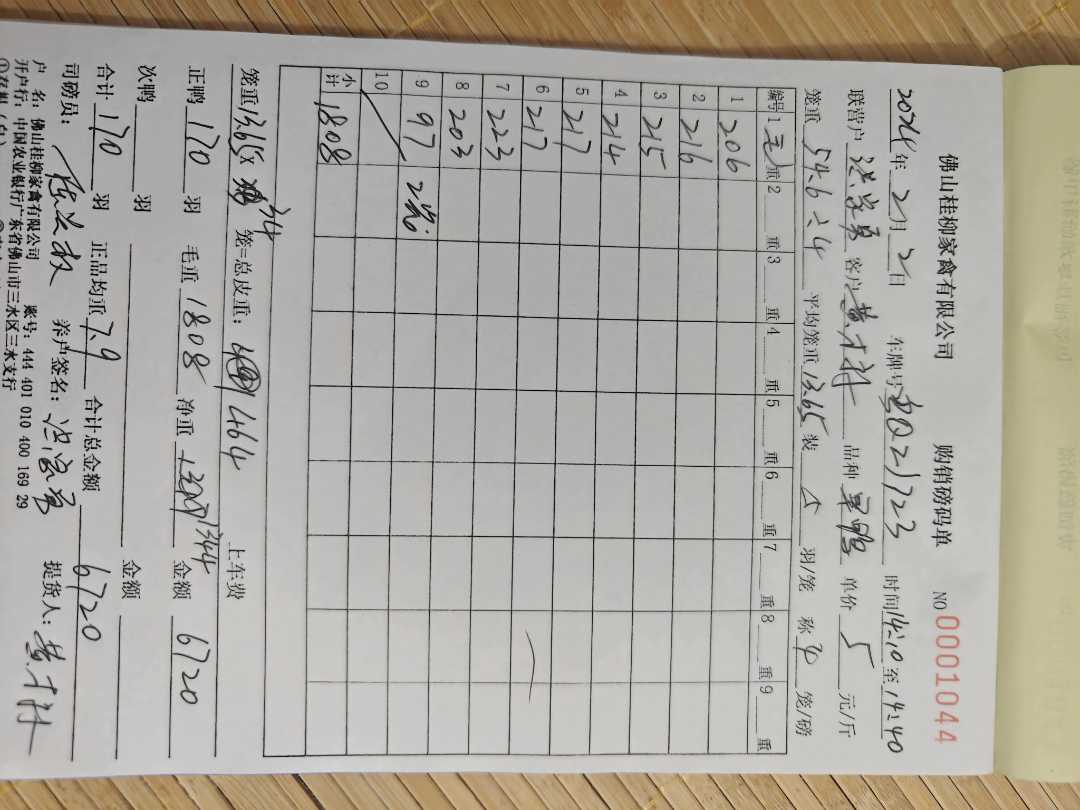 佛山桂柳家禽有限公司 购销磅码单 NO 0001044
2024年2月2日 车牌号粤Q21723 时间14:10至14:40
联营户 洪 勇 客户黄才 品种 鸭 单价5元/斤
笼重54.6÷4 平均笼重13.65装5羽/笼 称 笼/磅
编号 1毛重 2 重 3 重 4 重 5 重 6 重 7 重 8 重 9 重
1 206
2 216
3 215
4 214
5 217
6 217
7 223
8 203
9 97 2笼
10
小计 1808
笼重13.65× 34 笼=总皮重: 464 上车费
正鸭170羽 毛重1808 净重1344 金额6720
次鸭 羽 金额
合计170羽 正品均重7.9 合计总金额6720
司磅员: 养户签名: 提货人:黄才
户 名:佛山桂柳家禽有限公司 账号:444 401 010 400 169 29
开户行:中国农业银行广东省佛山市三水区三水支行